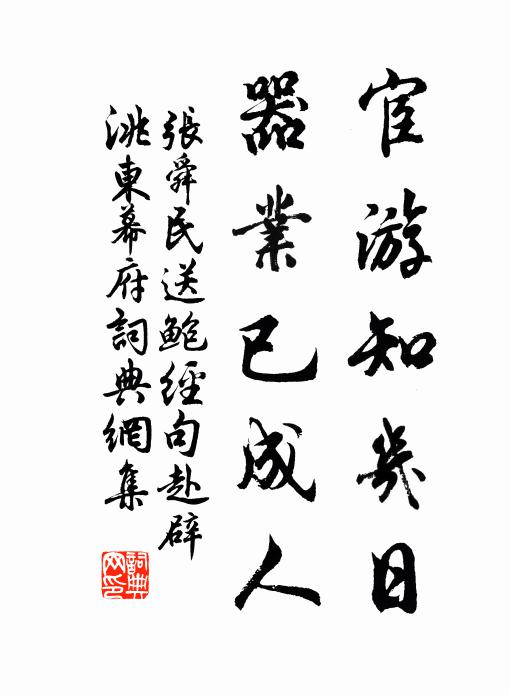 宦游知幾日
器業已成人
張舜民送鮑經句赴辟
洮東幕府詞典網集
詞典网印